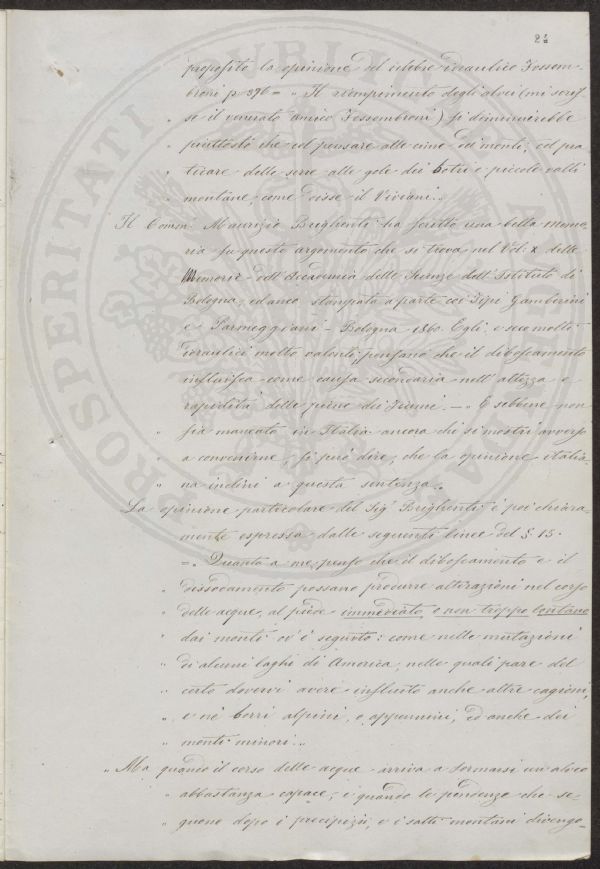 24
proposito la opinione del celebre idraulico Fossom-
broni p 396 = „ Il riempimento degli alvei (mi scris-
„ se il vivissimo amico Fossombroni) si diminuirebbe
„ piuttosto che col pensare alle cime dei monti, col pra
„ ticare delle serre alle gole dei botri e piccole valli
„ montane, come disse il Viviani „
Il Comm. Maurizio Brighenti ha scritto una bella memo-
ria su questo argomento che si trova nel Vol: X delle
Memorie dell'Accademia delle Scienze dell'Istituto di
Bologna, ed anco stampata a parte coi Tipi Gamberini
e Parmeggiani - Bologna 1860. Egli, e seco molti
idraulici molto valenti, pensano che il diboscamento
influisca come causa secondaria nell'altezza e
rapidità delle piene dei Fiumi. — „ E sebbene non
„ sia mancato in Italia ancora chi si mostri avverso
„ a convenirne, si può dire, che la opinione italia-
„ na inclini a questa sentenza „
La opinione particolare del Sig.r Brighenti è poi chiara-
mente espressa dalle seguenti linee del §. 15.
= „ Quanto a me, penso che il diboscamento e il
„ dissodamento possano produrre alterazioni nel corso
„ delle acque, al piede immediato o non troppo lontano
„ dai monti ov'è seguito: come nelle mutazioni
„ di alcuni laghi di America, nelle quali pare del
„ certo dovervi avere influito anche altre cagioni,
„ e ne' borri alpini, o appennini, ed anche dei
„ monti minori „
„ Ma quando il corso delle acque arriva a formarsi un alveo
„ abbastanza capace, e quando le pendenze che se-
„ guono dopo i precipizii, e i salti montani divengo-